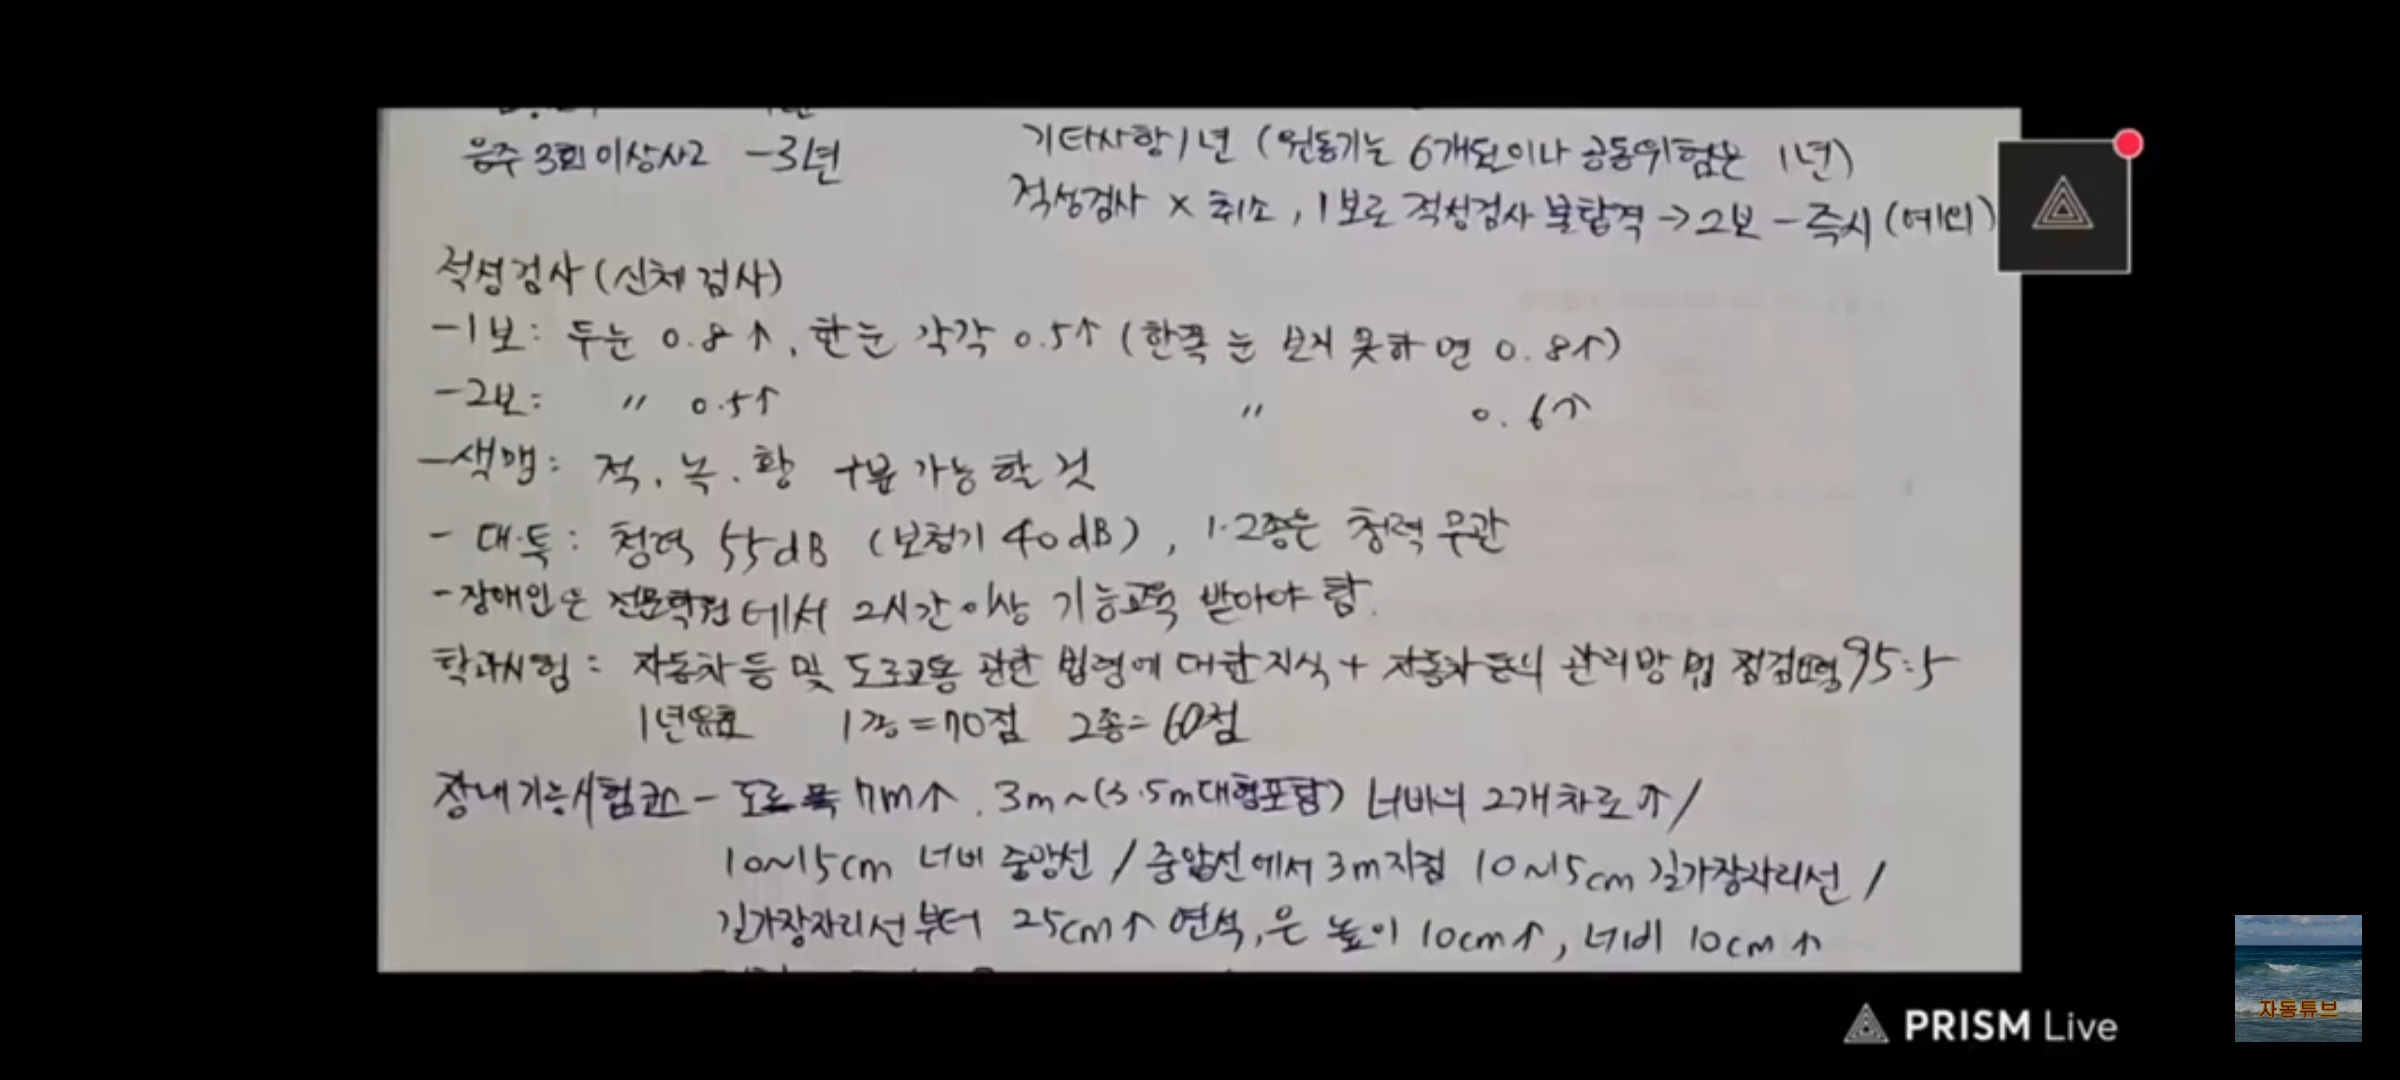 음주 3회 이상사고 -3년
기타사항 1년 (원동기는 6개월이나 공동위험은 1년)
적성검사 x 취소, 1보로 적성검사 불합격 → 2보 - 즉시 (예외)
적성검사 (신체검사)
-1보: 두눈 0.8↑, 한눈 각각 0.5↑ (한쪽 눈 보지 못하면 0.8↑)
-2보: 〃 0.5↑ 〃 0.6↑
-색맹: 적.녹.황 구분 가능할 것
- 대.특: 청력 55dB (보청기 40dB), 1.2종은 청력 무관
- 장애인은 전문학원에서 2시간이상 기능교육 받아야 함.
학과시험: 자동차 등 및 도로교통 관한 법령에 대한 지식 + 자동차 등의 관리방법 점검요령 95:5
1년유효 1종=70점 2종=60점
장내기능시험코스 - 도로폭 7m↑. 3m~(3.5m대형포함) 너비의 2개차로↑/
10~15cm 너비 중앙선 / 중앙선에서 3m지점 10~15cm 길가장자리선 /
길가장자리선부터 25cm↑ 연석,은 높이 10cm↑, 너비 10cm↑
PRISM Live
자동튜브